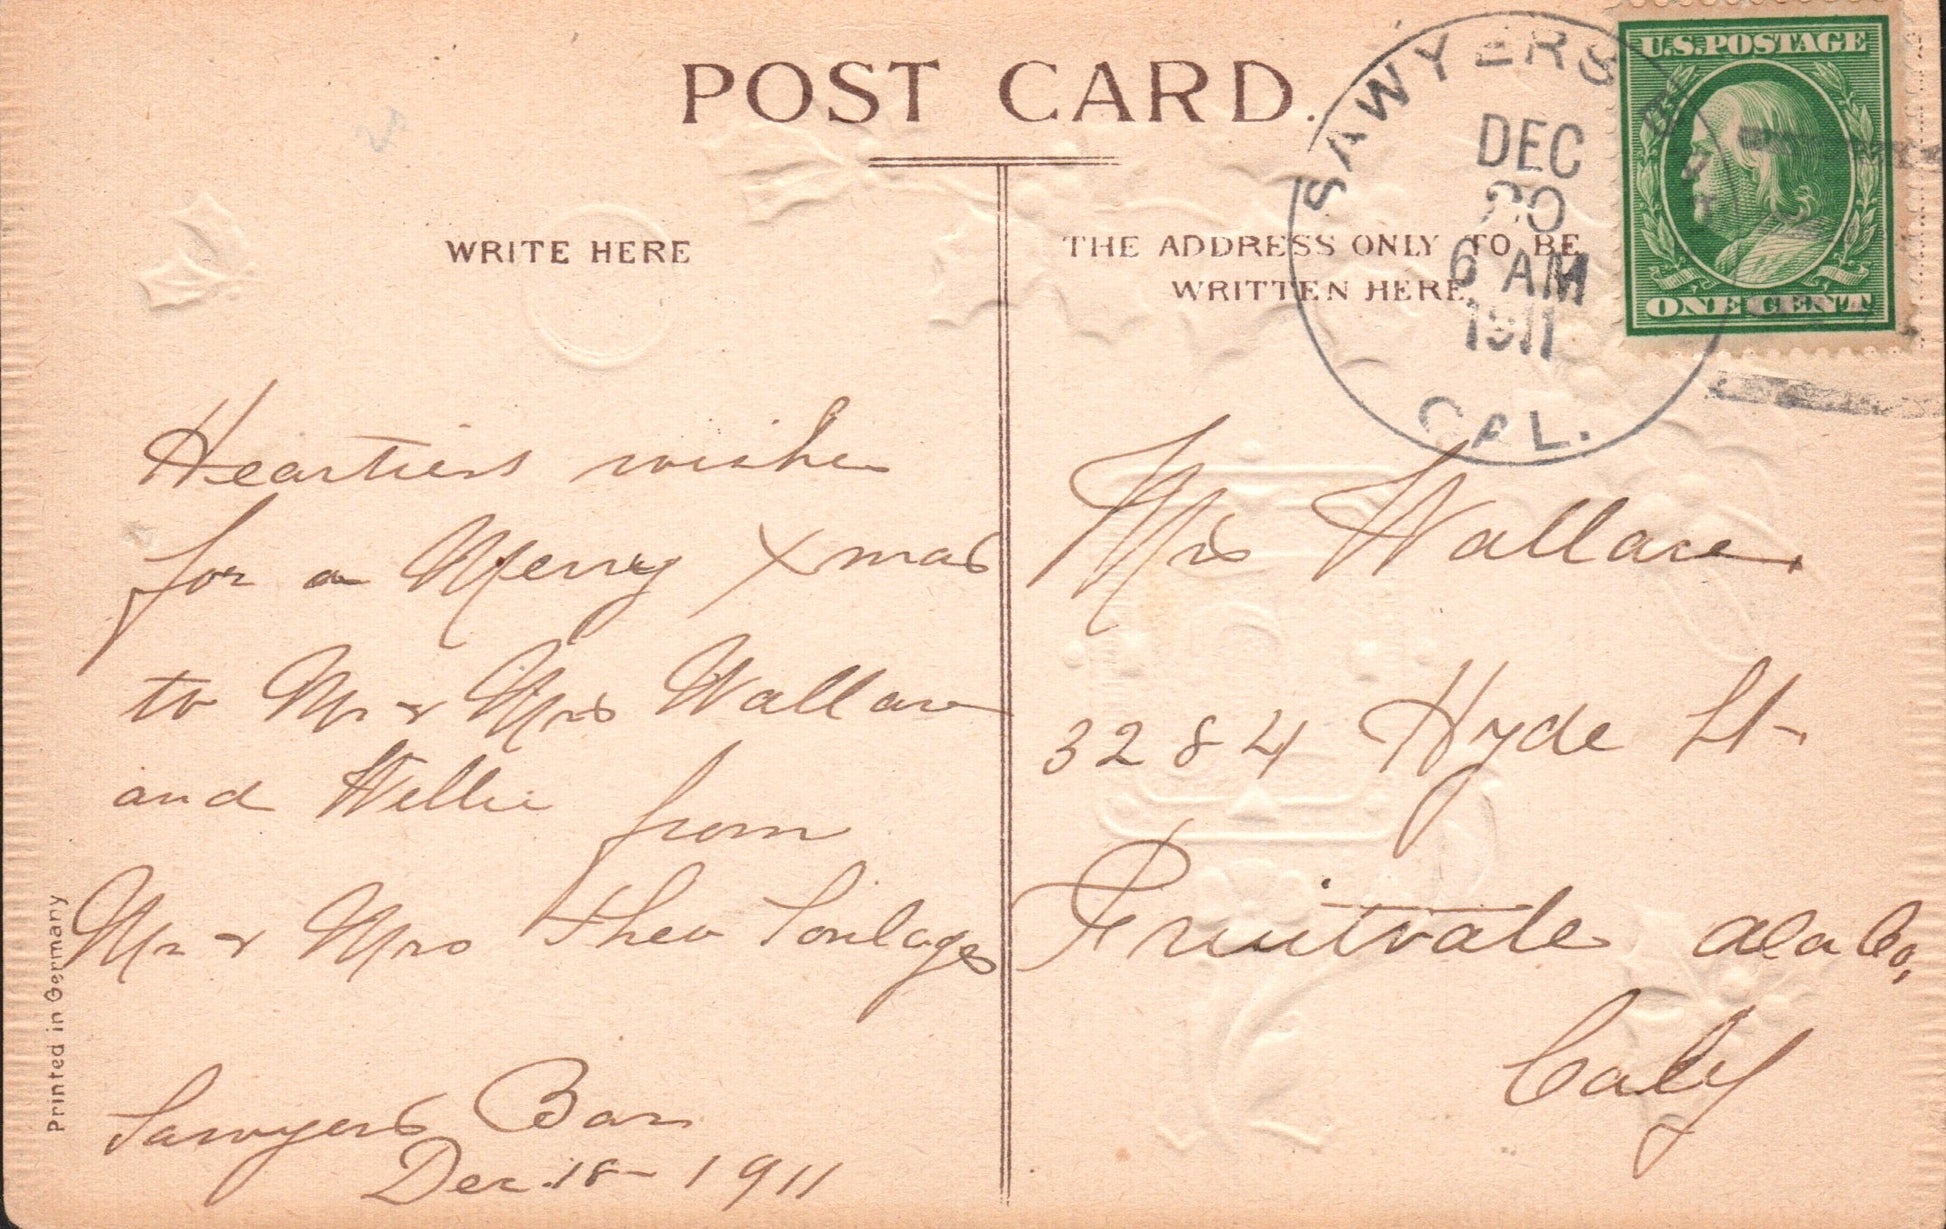 POST CARD.
WRITE HERE
THE ADDRESS ONLY TO BE
WRITTEN HERE.
SAWYERS
DEC
20
6 AM
1911
CAL.
U.S. POSTAGE
ONE CENT
Heartiest wishes
for a Merry Xmas
to Mr & Mrs Wallace
and Willie from
Mr & Mrs Theo
Sawyers Bar
Dec. 18 - 1911
Mrs Wallace
3284 Hyde St
Fruitvale Ala Co,
Caly
Printed in Germany